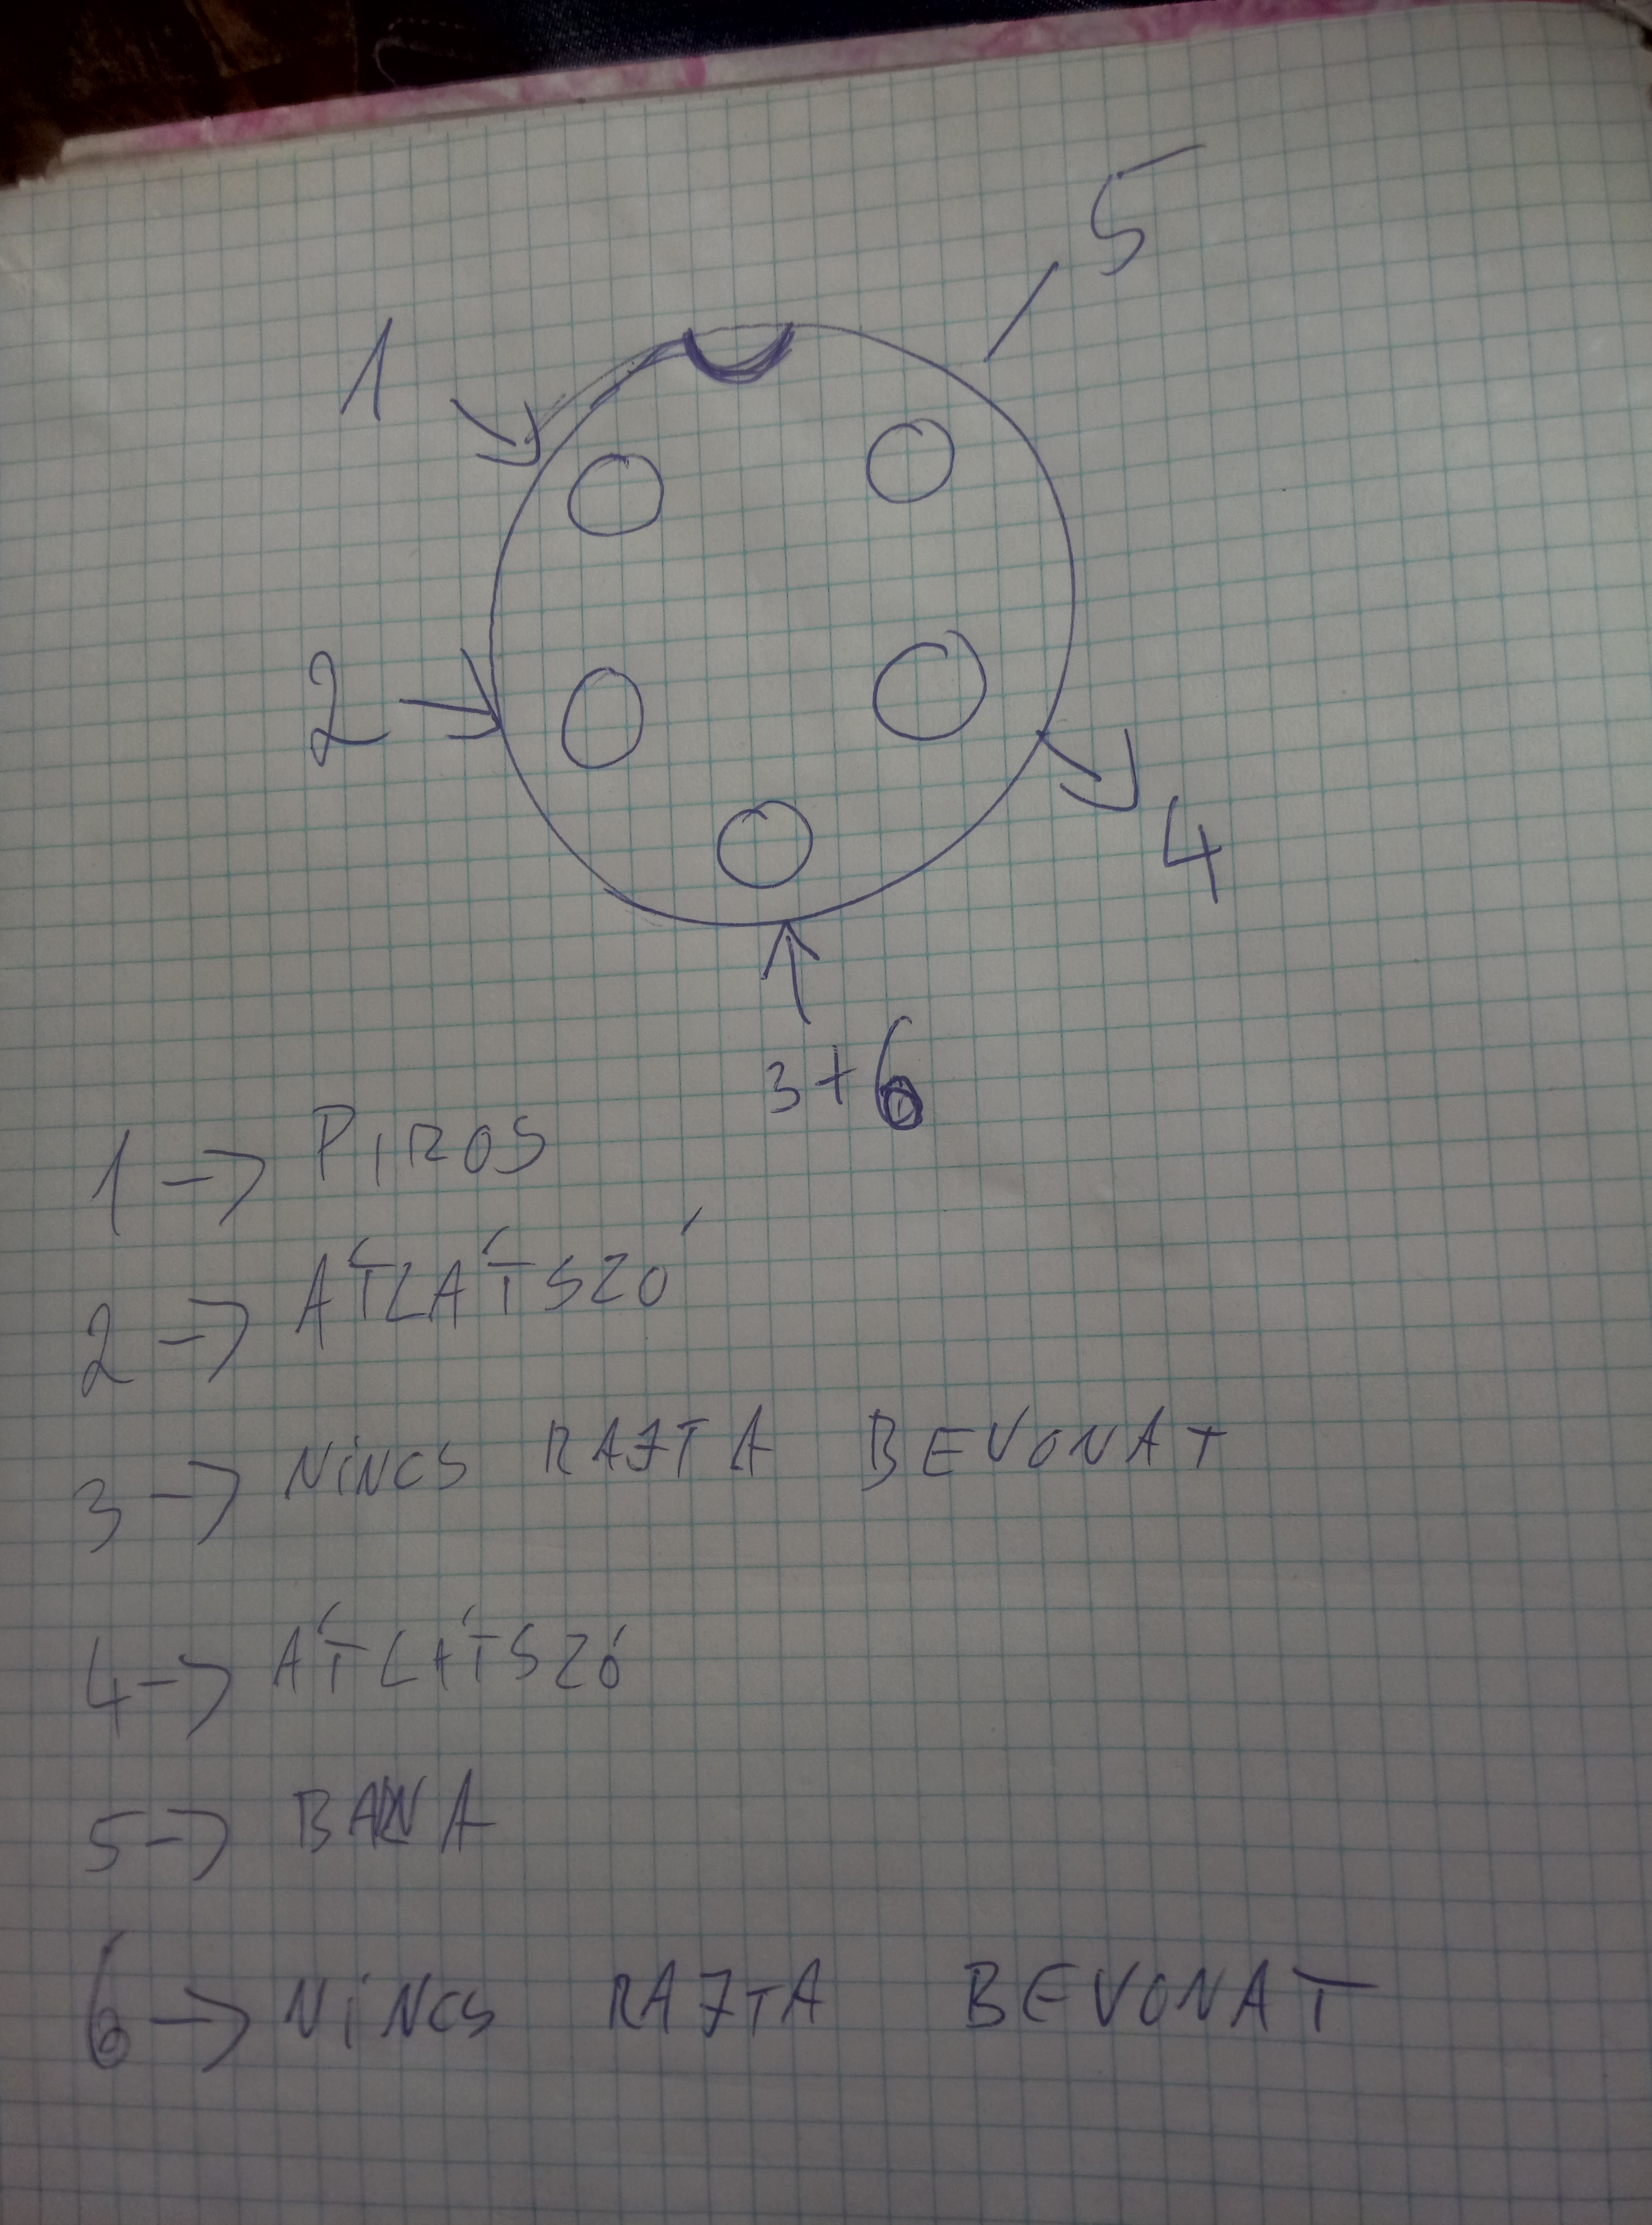 5
1
2
4
3+6
1 -> PIROS
2 -> ÁTLÁTSZÓ
3 -> NiNCS RAJTA BEVONAT
4 -> ÁTLÁTSZÓ
5 -> BARNA
6 -> NiNCS RAJTA BEVONAT